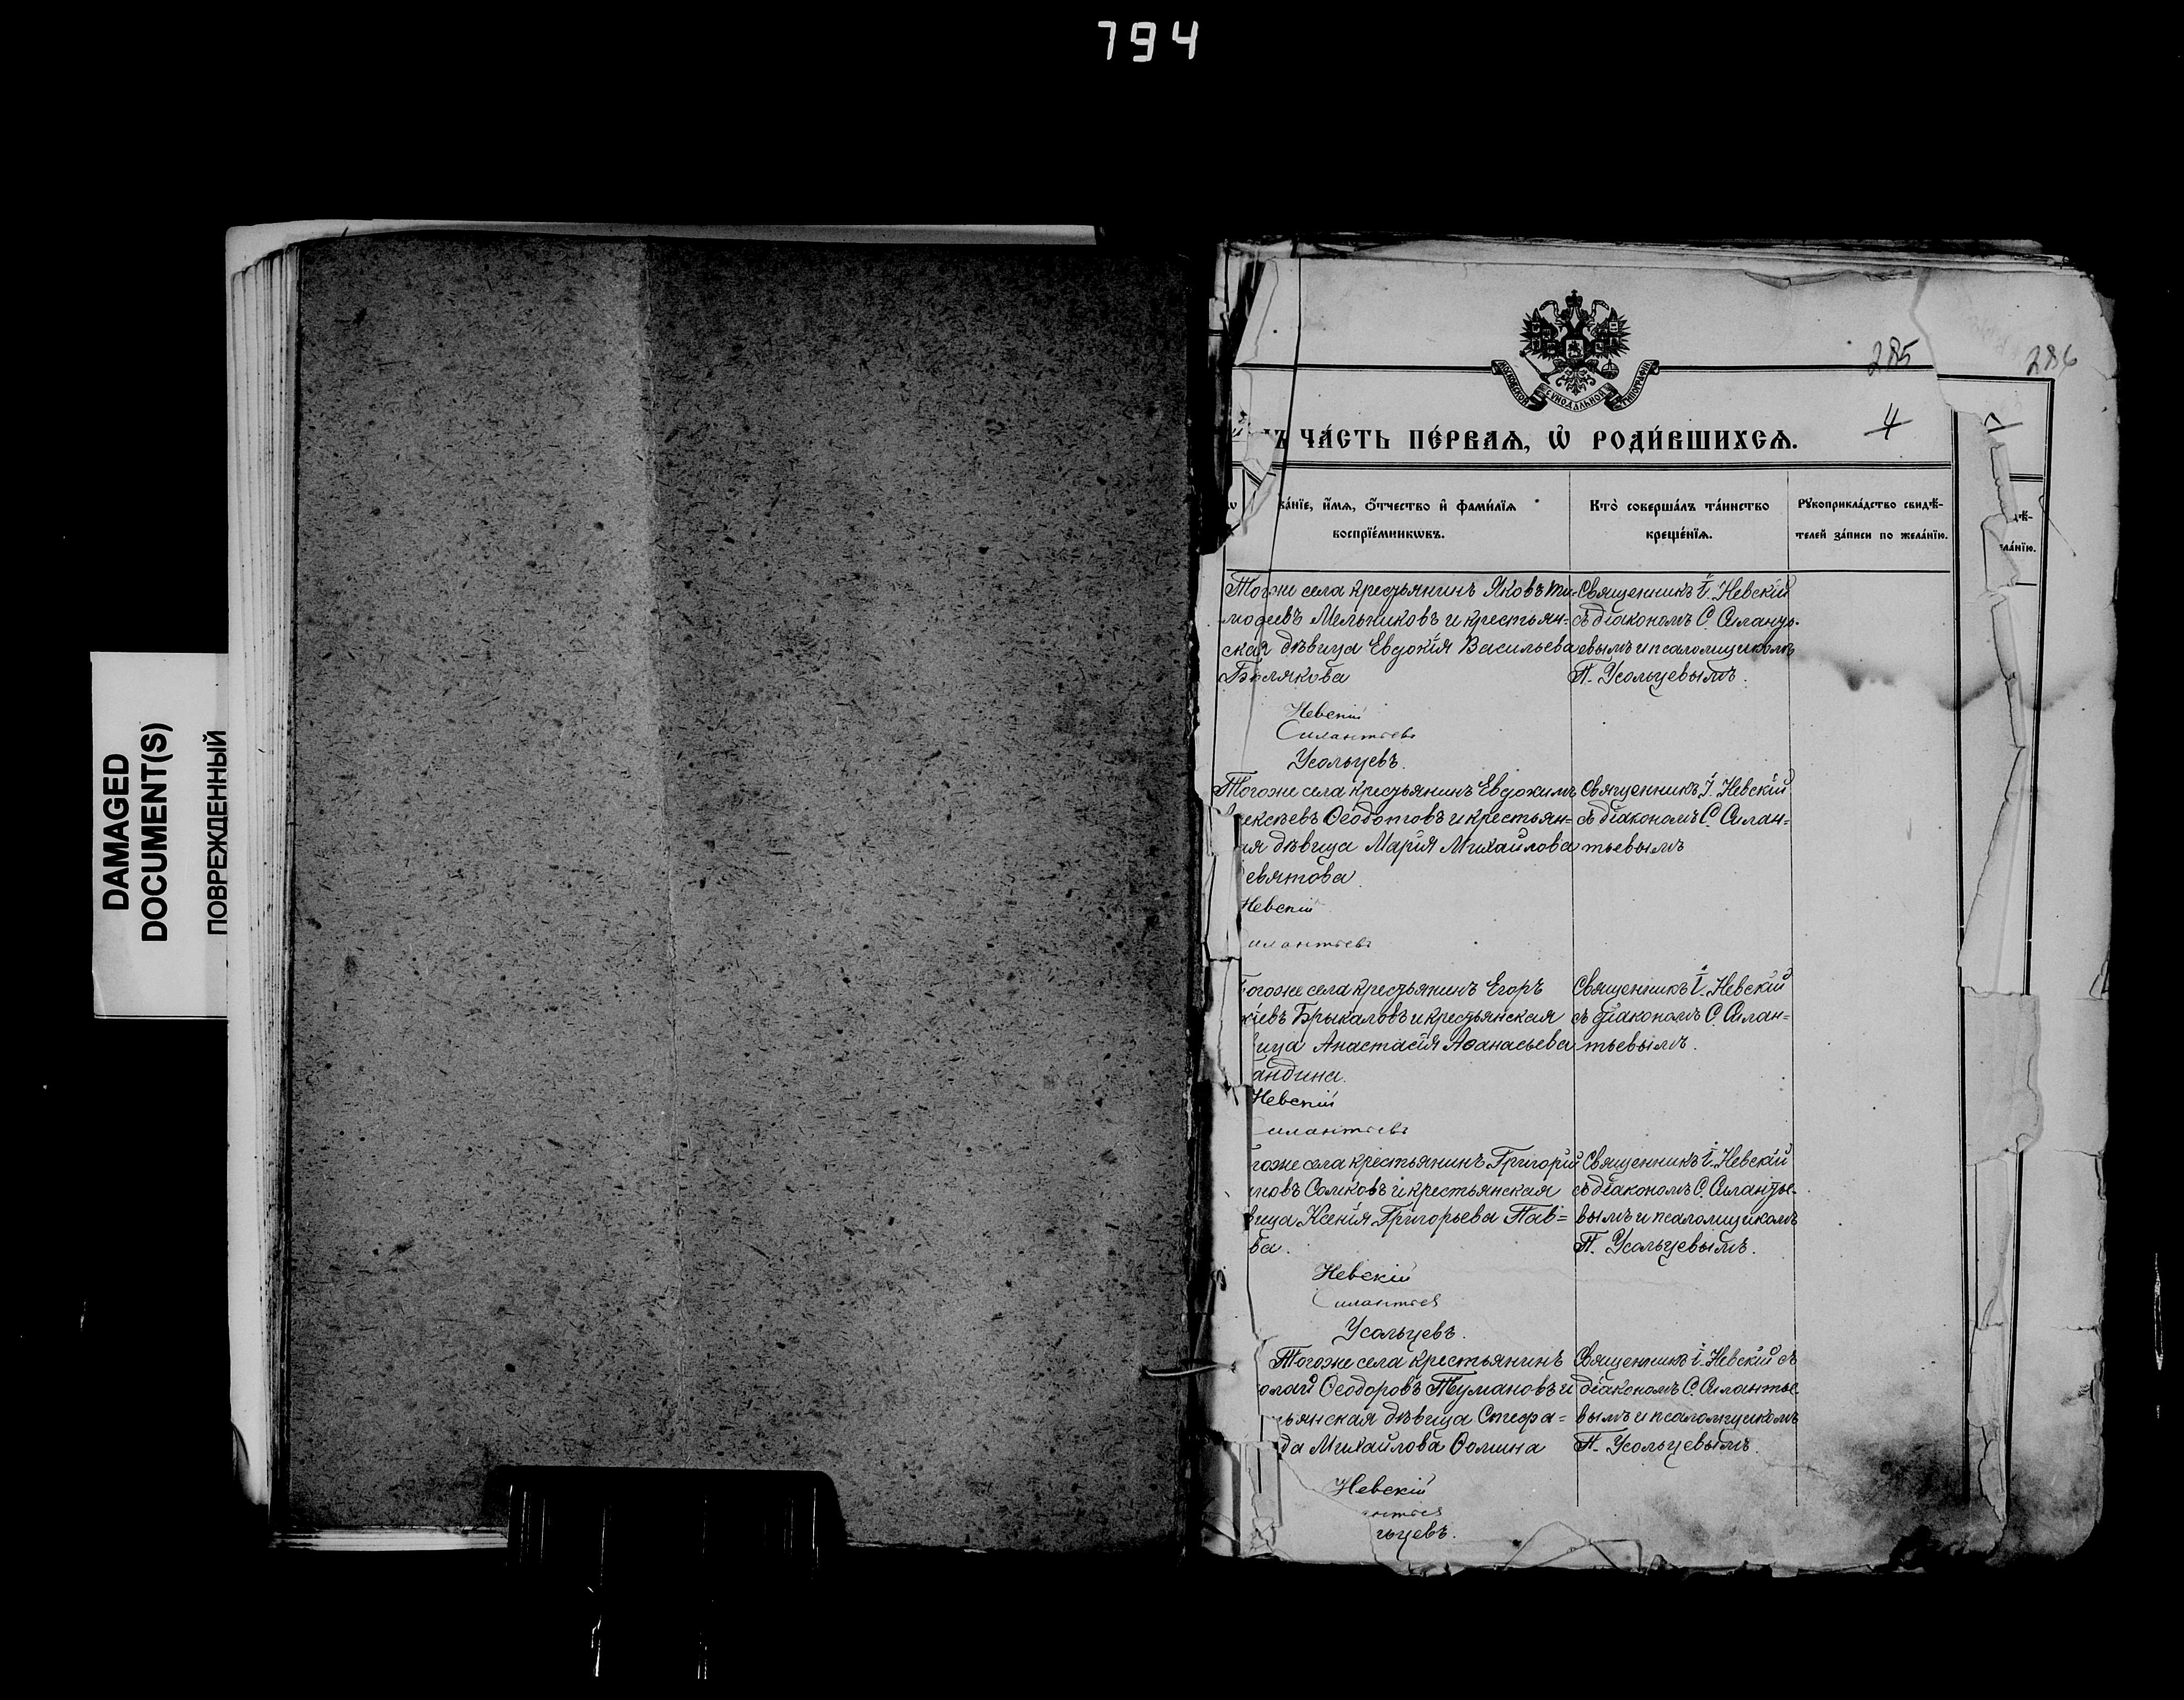 794
DAMAGED
DOCUMENT(S)
ПОВРЕЖДЕННЫЙ
МОСКОВСКОЙ СѴНОДАЛЬНОЙ ТИПОГРАФІИ
285
286
4
ЧА́СТЬ ПЕ́РВАѦ, Ѡ҆ РОДИ́ВШИХСѦ.
ва́нїе, и҆́мѧ, ѻ҆́тчество и҆ фами́лїѧ
воспрїе́мникѡвъ.
Кто̀ соверша́лъ та́инство
креще́нїѧ.
Рꙋкоприкла́дство свидѣ́-
телей за́писи по жела́нїю.
Тогоже села крестьянинъ Яковъ Ти-
мофеевъ Мельниковъ и крестьян-
ская дѣвица Евдокія Васильева
Бѣлякова
Невскій
Силантьевъ
Усольцевъ.
Священникъ І. Невскій
съ діакономъ С. Силанть-
евымъ и псаломщикомъ
П. Усольцевымъ.
Тогоже села крестьянинъ Евдокимъ
ексѣевъ Ѳеодотовъ и крестьян=
ая дѣвица Марія Михайлова
евятова
Невскій
илантьевъ
Священникъ І. Невскій
съ діакономъ С. Силан=
тьевымъ
огоже села крестьянинъ Егоръ
кіевъ Брыкаловъ и крестьянская
вица Анастасія Аѳанасьева
андина.
Невскій
илантьевъ
Священникъ І. Невскій
съ діакономъ С. Силан=
тьевымъ.
гоже села крестьянинъ Григорій
новъ Сомковъ и крестьянская
вица Ксенія Григорьева Пав=
ва.
Невскій
Силантьев
Усольцевъ.
Священникъ І. Невскій
съ діакономъ С. Силантье-
вымъ и псаломщикомъ
П. Усольцевымъ.
Тогоже села крестьянинъ
олай Ѳеодоровъ Тумановъ и
ьянская дѣвица Стефа=
да Михайлова Ѳомина
Невскій
антьев
льцевъ.
Священникъ І. Невскій съ
діакономъ С. Силантье
вымъ и псаломщикомъ
П. Усольцевымъ.